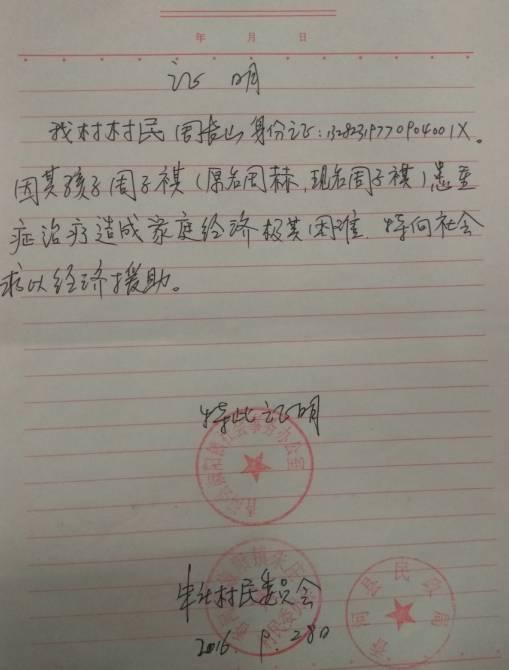 年 月 日
证明
我村村民周 山身份证:13282319770904001X。
因其孩子周子祺(原名周赫,现名周子祺)患重
症治疗造成家庭经济极其困难,特向社会
求以经济援助。
特此证明
村民委员会
2016
县民政局